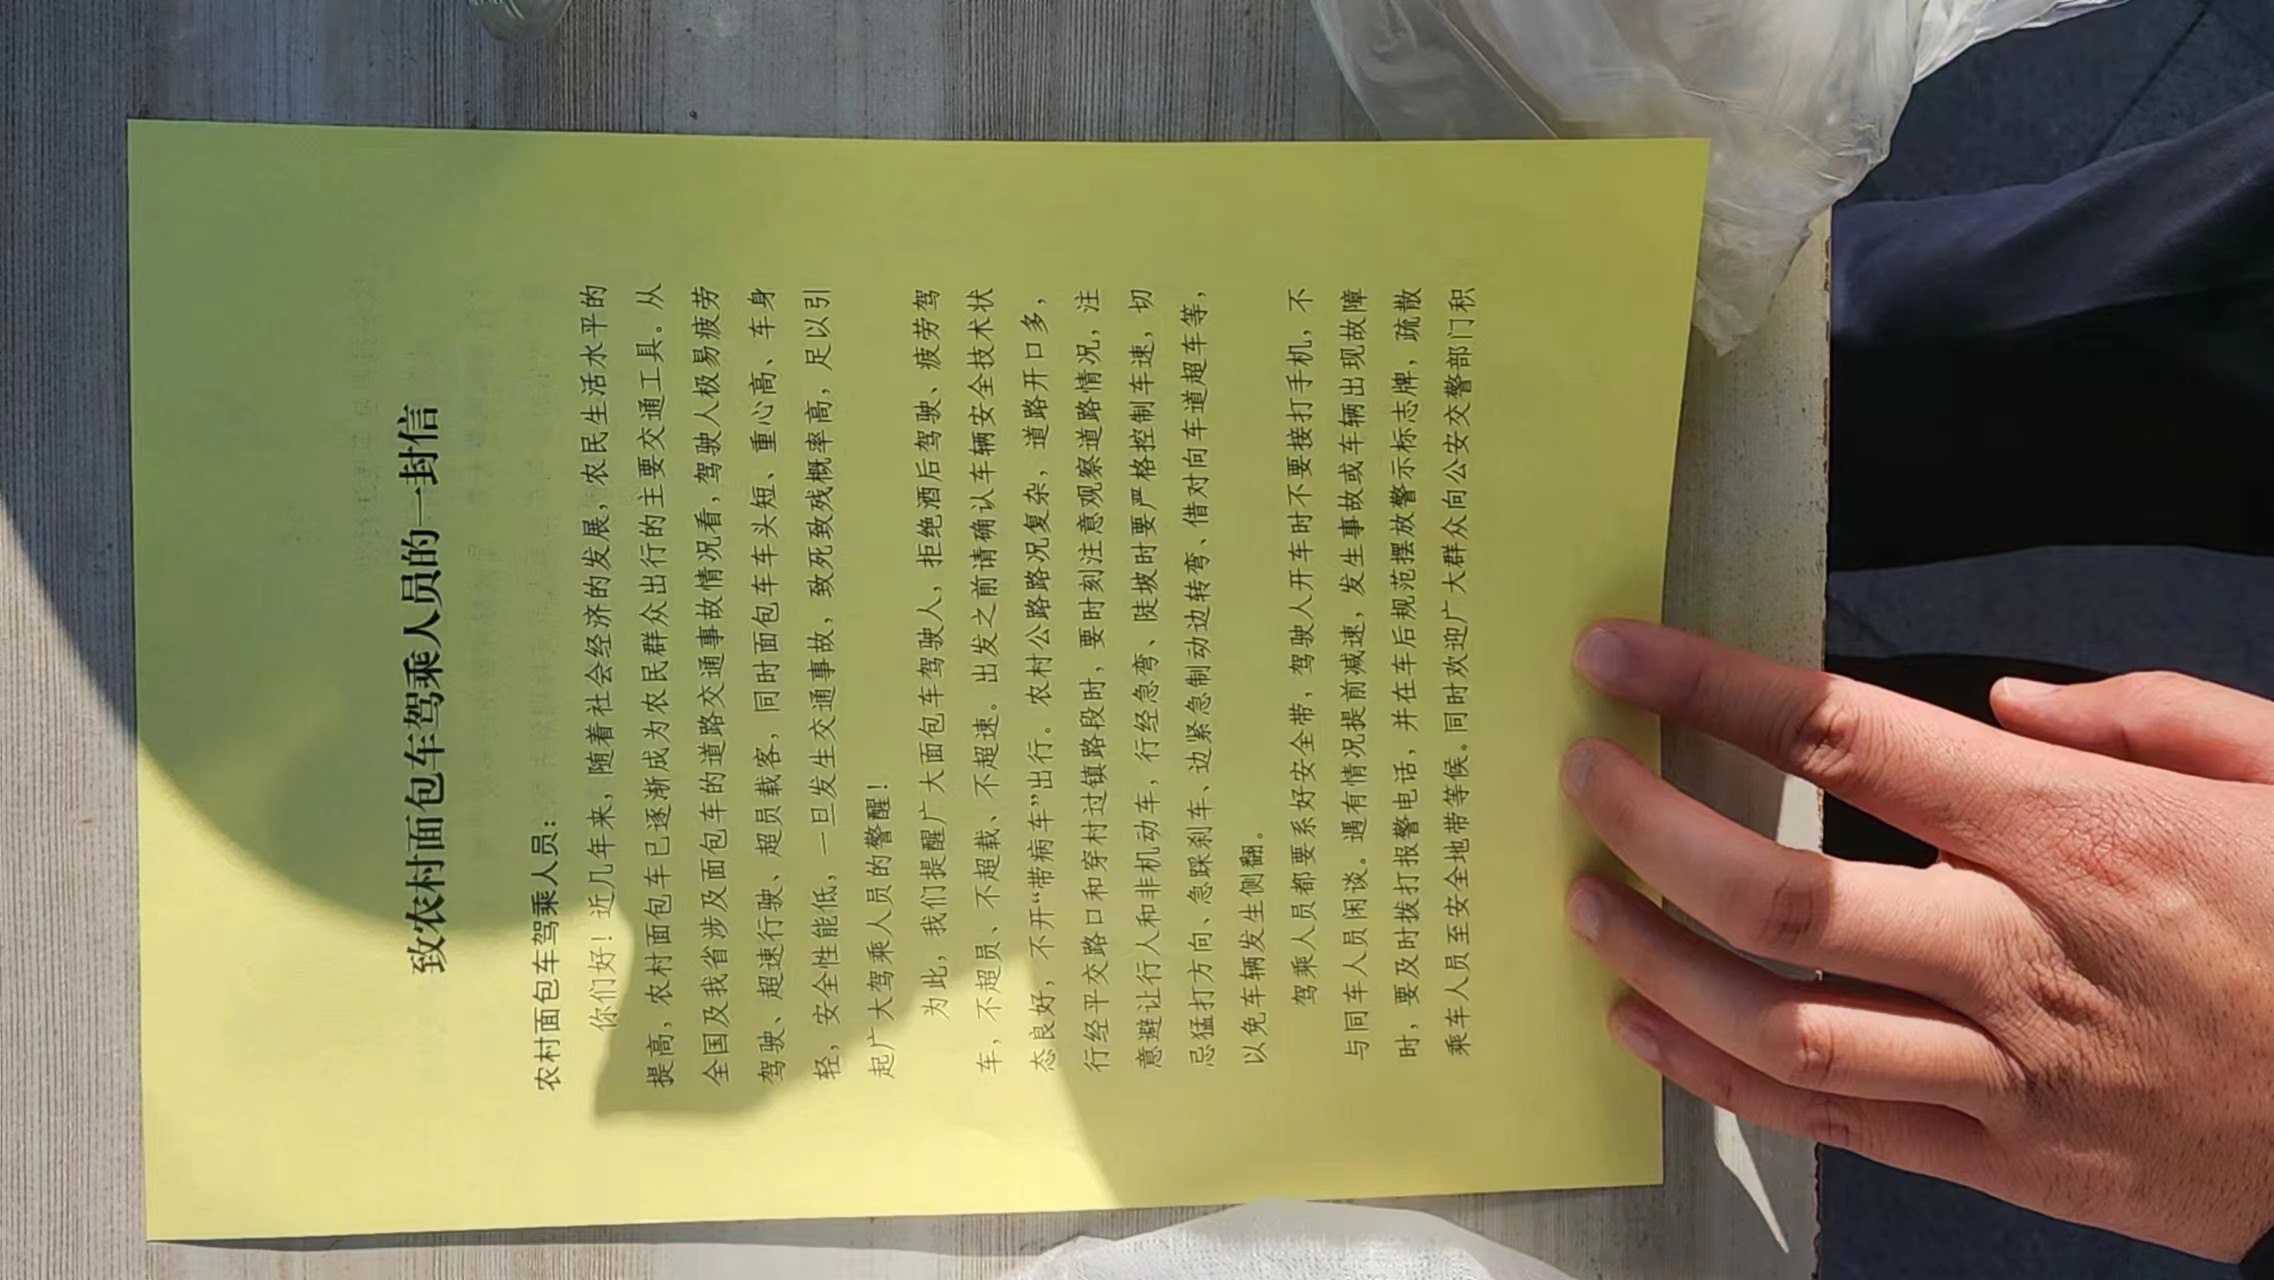 致农村面包车驾乘人员的一封信
农村面包车驾乘人员：
你们好！近几年来，随着社会经济的发展，农民生活水平的
提高，农村面包车已逐渐成为农民群众出行的主要交通工具。从
全国及我省涉及面包车的道路交通事故情况看，驾驶人极易疲劳
驾驶、超速行驶、超员载客，同时面包车车头短、重心高、车身
轻，安全性能低，一旦发生交通事故，致死致残概率高，足以引
起广大驾乘人员的警醒！
为此，我们提醒广大面包车驾驶人，拒绝酒后驾驶、疲劳驾
车，不超员、不超载、不超速。出发之前请确认车辆安全技术状
态良好，不开“带病车”出行。农村公路路况复杂，道路开口多，
行经平交路口和穿村过镇路段时，要时刻注意观察道路情况，注
意避让行人和非机动车，行经急弯、陡坡时要严格控制车速，切
忌猛打方向、急踩刹车、边紧急制动边转弯、借对向车道超车等，
以免车辆发生侧翻。
驾乘人员都要系好安全带，驾驶人开车时不要接打手机，不
与同车人员闲谈。遇有情况提前减速，发生事故或车辆出现故障
时，要及时拨打报警电话，并在车后规范摆放警示标志牌，疏散
乘车人员至安全地带等候。同时欢迎广大群众向公安交警部门积